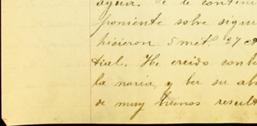 agua. Se le contin
poniente sobre sigue
hicieron 5 mét. 27 c
tial. He creido con
la noria, y ber su ab
de muy buenos result